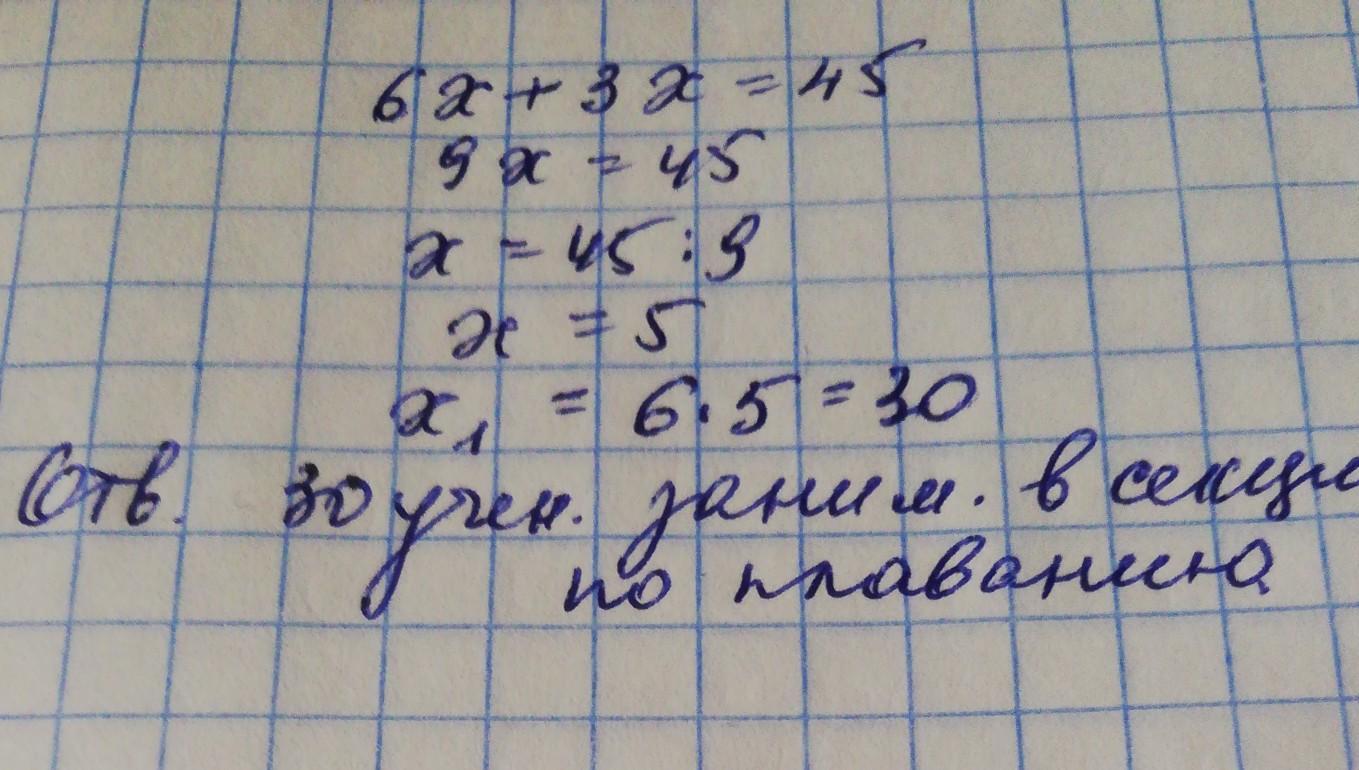 6x + 3x = 45
9x = 45
x = 45 : 9
x = 5
x₁ = 6 · 5 = 30
Отв. 30 учен. заним. в секци
по плаванию